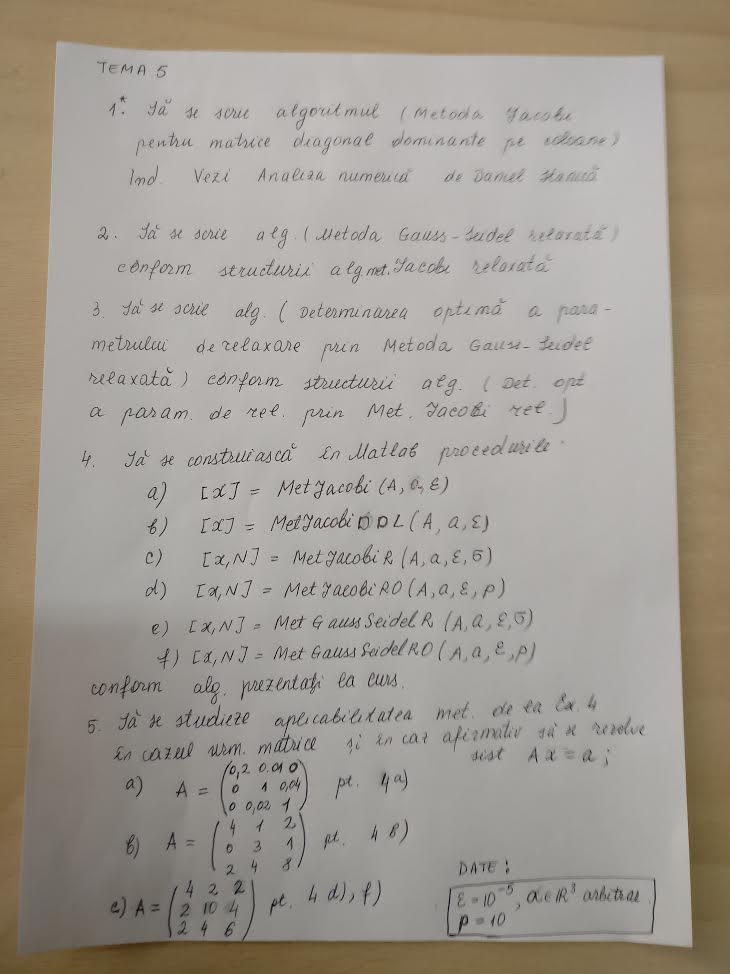 TEMA 5
1*. Să se scrie algoritmul (Metoda Jacobi
pentru matrice diagonal dominante pe coloane)
Ind. Vezi Analiza numerică de Daniel
2. Să se scrie alg. (Metoda Gauss-Seidel relaxată)
conform structurii alg met. Jacobi relaxată
3. Să se scrie alg. (Determinarea optimă a para-
metrului de relaxare prin Metoda Gauss-Seidel
relaxată) conform structurii alg. (Det. opt
a param. de rel. prin Met. Jacobi rel.)
4. Să se construiască în Matlab procedurile:
a) [x] = MetJacobi (A, a, ε)
b) [x] = MetJacobi DDL (A, a, ε)
c) [x,N] = MetJacobi R (A, a, ε, σ)
d) [x,N] = MetJacobi RO (A, a, ε, p)
e) [x,N] = Met Gauss Seidel R (A, a, ε, σ)
f) [x,N] = Met Gauss Seidel RO (A, a, ε, p)
conform alg. prezentați la curs.
5. Să se studieze aplicabilitatea met. de la Ex. 4
în cazul urm. matrice și în caz afirmativ să se rezolve
sist Ax = a;
a) A = (0,2 0.01 0
0 1 0,04
0 0,02 1) pt. 4a)
b) A = (4 1 2
0 3 1
2 4 8) pt. 4 b)
c) A = (4 2 2
2 10 4
2 4 6) pt. 4 d), f)
DATE:
ε = 10⁻⁵, a ∈ ℝ³ arbitrar
p = 10